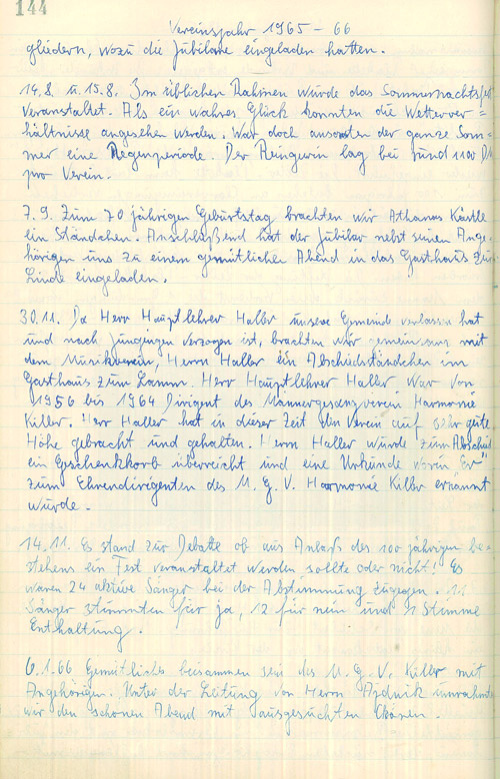 144
Vereinsjahr 1965 - 66
gliedern, wozu die Jubilare eingeladen hatten.
14.8. u. 15.8. Im üblichen Rahmen wurde das Sommernachtsfest
veranstaltet. Als ein wahres Glück konnten die Wetterver=
hältnisse angesehen werden. War doch ansonsten der ganze Som
mer eine Regenperiode. Der Reingewin lag bei rund 1100 DM
pro Verein.
7.9. Zum 70 jährigen Geburtstag brachten wir Athanas
ein Ständchen. Anschließend hat der Jubilar nebst seinen Ange-
hörigen uns zu einem gemütlichen Abend in das Gasthaus zur
Linde eingeladen.
30.11. Da Herr Hauptlehrer Haller unsere Gemeinde verlassen hat
und nach Jungingen verzogen ist, brachten wir gemeinsam mit
dem Musikverein, Herrn Haller ein Abschiedständchen im
Gasthaus zum Lamm. Herr Hauptlehrer Haller, war von
1956 bis 1964 Dirigent des Männergesangverein Harmonie
Killer. Herr Haller hat in dieser Zeit den Verein auf sehr gute
Höhe gebracht und gehalten. Herrn Haller wurde zum Abschied
ein Geschenkkorb überreicht und eine Urkunde worin "Er"
zum Ehrendirigenten des M. G. V. Harmonie Killer ernannt
wurde.
14.11. Es stand zur Debatte ob aus Anlaß des 100 jährigen be-
stehens ein Fest veranstaltet werden sollte oder nicht! Es
waren 24 aktive Sänger bei der Abstimmung zugegen. 11
Sänger stimmten für ja, 12 für nein und 1 Stimme
Enthaltung.
6.1.66 Gemütliches beisammen sein des M. G. V. Killer mit
Angehörigen. Unter der Leitung von Herrn umrahmte
wir den schönen Abend mit ausgesuchten Chören.